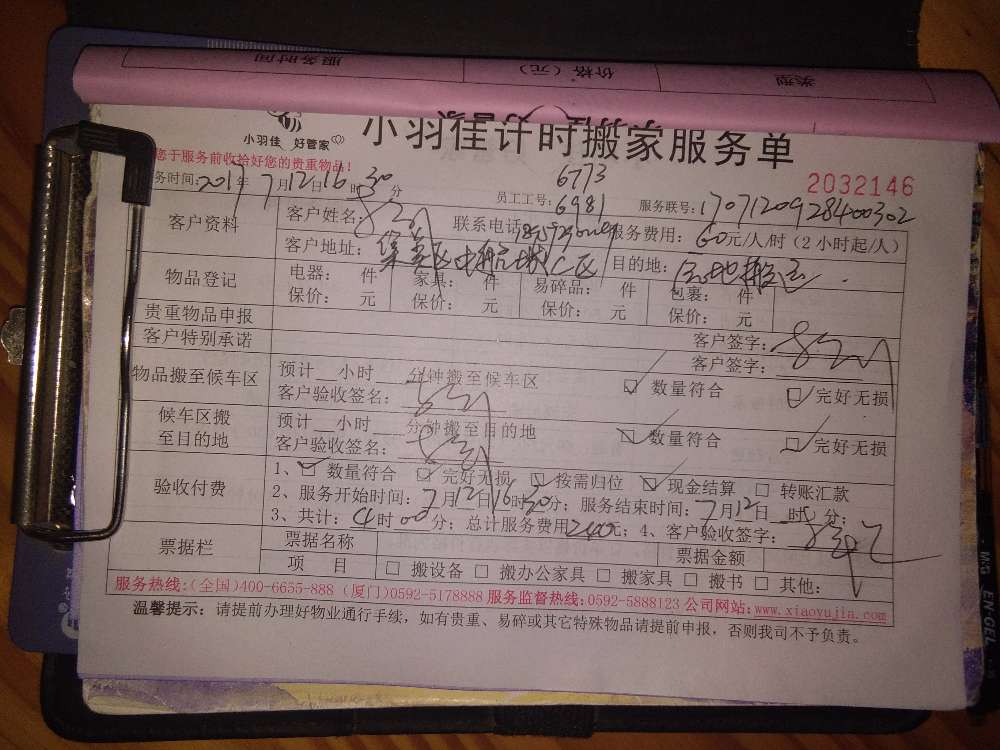 服务时间 价格（元） 类型
小羽佳 好管家
小羽佳计时搬家服务单
您于服务前收拾好您的贵重物品！
2032146
务时间：2017年7月12日16时30分 员工工号：6773 6981 服务联号：1707120928400302
客户资料 客户姓名： 联系电话 服务费用：60元/人/时（2小时起/人）
客户地址：集美区中航城C区 目的地：原地搬运
物品登记 电器： 件 家具： 件 易碎品： 件 包裹： 件
保价： 元 保价： 元 保价： 元 保价： 元
贵重物品申报 客户签字：
客户特别承诺 客户签字：
物品搬至候车区 预计__小时__分钟搬至候车区 数量符合 完好无损
客户验收签名：
候车区搬至目的地 预计__小时__分钟搬至目的地 数量符合 完好无损
客户验收签名：
验收付费 1、 数量符合 完好无损 按需归位 现金结算 转账汇款
2、服务开始时间：7月12日16时30分；服务结束时间：7月12日__时__分；
3、共计：4时00分；总计服务费用240元；4、客户验收签字：
票据栏 票据名称 票据金额
项 目 搬设备 搬办公家具 搬家具 搬书 其他：
服务热线：(全国)400-6655-888 (厦门)0592-5178888 服务监督热线：0592-5888123 公司网站：www.xiaoyujia.com
温馨提示：请提前办理好物业通行手续，如有贵重、易碎或其它特殊物品请提前申报，否则我司不予负责。
M&G EN·GEL